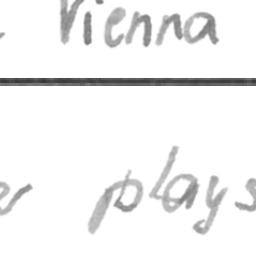 Vienna
plays